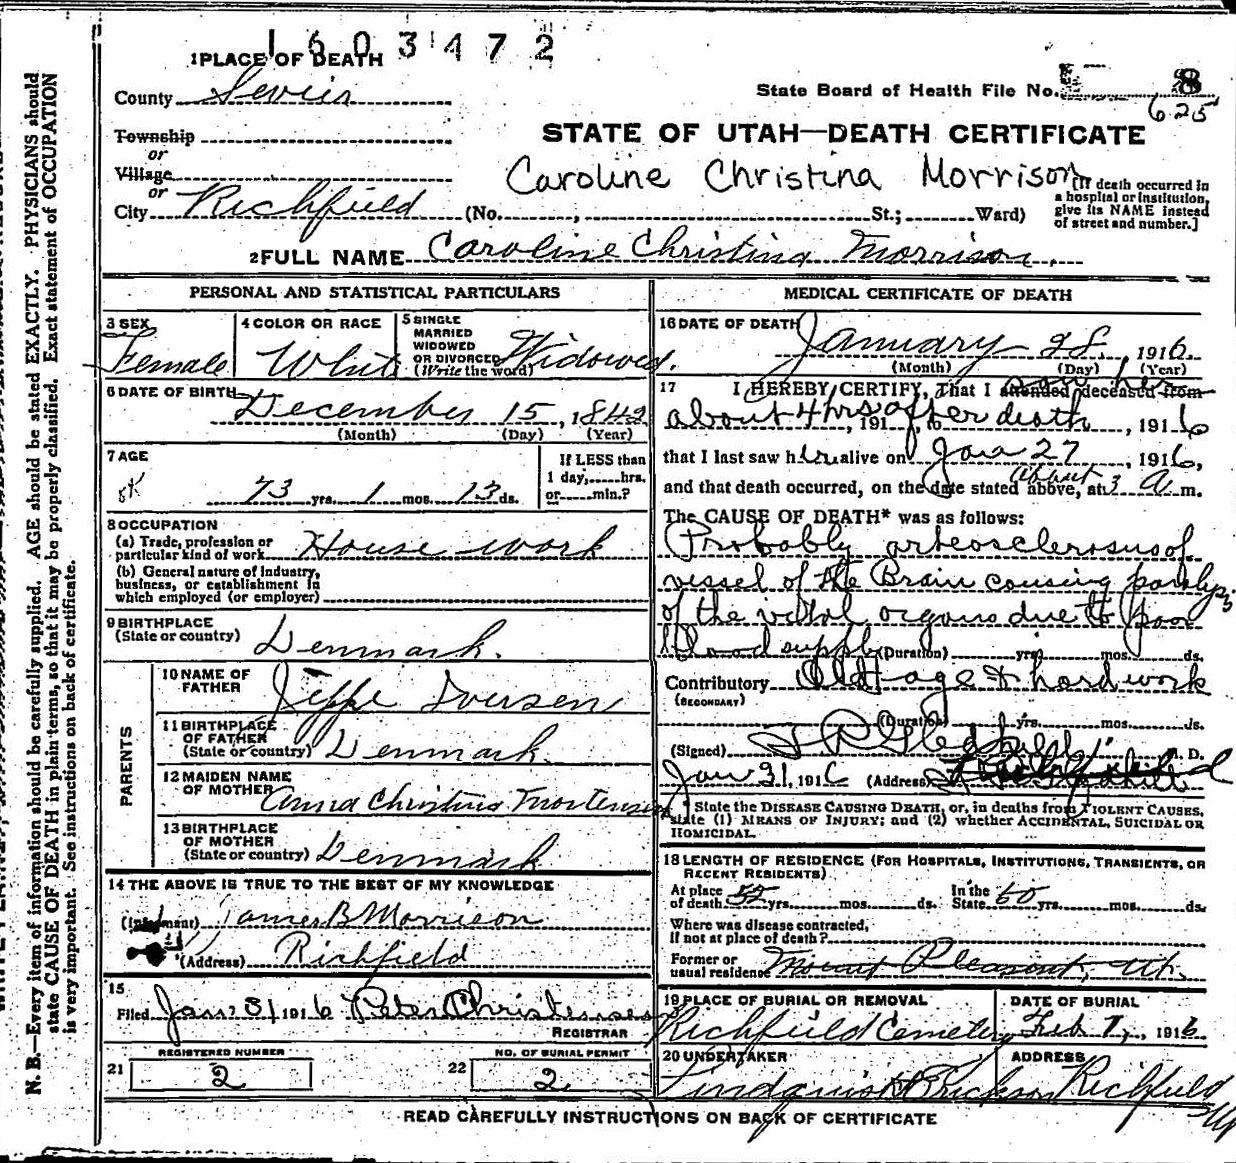 1603472
1 PLACE OF DEATH
County Sevier
State Board of Health File No. 8
625
Township
or
STATE OF UTAH—DEATH CERTIFICATE
Village
or
Caroline Christina Morrison
City Richfield (No. , St.; Ward)
[If death occurred in
a hospital or institution,
give its NAME instead
of street and number.]
2 FULL NAME Caroline Christina Morrison.
PERSONAL AND STATISTICAL PARTICULARS
3 SEX
Female
4 COLOR OR RACE
White
5 SINGLE
MARRIED
WIDOWED
OR DIVORCED
(Write the word)
Widowed.
6 DATE OF BIRTH
December 15, 1842
(Month) (Day) (Year)
7 AGE
73 yrs. 1 mos. 13 ds.
If LESS than
1 day, hrs.
or min.?
8 OCCUPATION
(a) Trade, profession or
particular kind of work House work
(b) General nature of industry,
business, or establishment in
which employed (or employer)
9 BIRTHPLACE
(State or country) Denmark.
PARENTS
10 NAME OF
FATHER Jeppe Iversen
11 BIRTHPLACE
OF FATHER
(State or country) Denmark.
12 MAIDEN NAME
OF MOTHER Anna Christina Mortensen
13 BIRTHPLACE
OF MOTHER
(State or country) Denmark
14 THE ABOVE IS TRUE TO THE BEST OF MY KNOWLEDGE
(Informant) James B Morrison
(Address) Richfield
15
Filed Jan. 31 1916 Peter Christensen
REGISTRAR
REGISTERED NUMBER
21 2
NO. OF BURIAL PERMIT
22 2
MEDICAL CERTIFICATE OF DEATH
16 DATE OF DEATH
January 28, 1916
(Month) (Day) (Year)
saw her
17 I HEREBY CERTIFY, That I attended deceased from
about 4 hrs after death, 191 , to , 1916
that I last saw her alive on Jan 27, 1916,
about
and that death occurred, on the date stated above, at 3 a m.
The CAUSE OF DEATH* was as follows:
Probably arteosclerosus of
vessel of the Brain causing paralysis
of the vital organs due to poor
blood supply (Duration) yrs. mos. ds.
Contributory Old age & hard work
(SECONDARY)
(Duration) yrs. mos. ds.
(Signed) M. D.
Jan 31, 1916 (Address)
* State the DISEASE CAUSING DEATH, or, in deaths from VIOLENT CAUSES,
state (1) MEANS OF INJURY; and (2) whether ACCIDENTAL, SUICIDAL OR
HOMICIDAL.
18 LENGTH OF RESIDENCE (FOR HOSPITALS, INSTITUTIONS, TRANSIENTS, OR
RECENT RESIDENTS)
At place
of death 52 yrs. mos. ds.
In the
State 60 yrs. mos. ds.
Where was disease contracted,
if not at place of death?
Former or
usual residence Mount Pleasant, Ut.
19 PLACE OF BURIAL OR REMOVAL
Richfield Cemetery
DATE OF BURIAL
Feb 1, 1916
20 UNDERTAKER
ADDRESS
Richfield
READ CAREFULLY INSTRUCTIONS ON BACK OF CERTIFICATE
N. B.—Every item of information should be carefully supplied. AGE should be stated EXACTLY. PHYSICIANS should
state CAUSE OF DEATH in plain terms, so that it may be properly classified. Exact statement of OCCUPATION
is very important. See instructions on back of certificate.